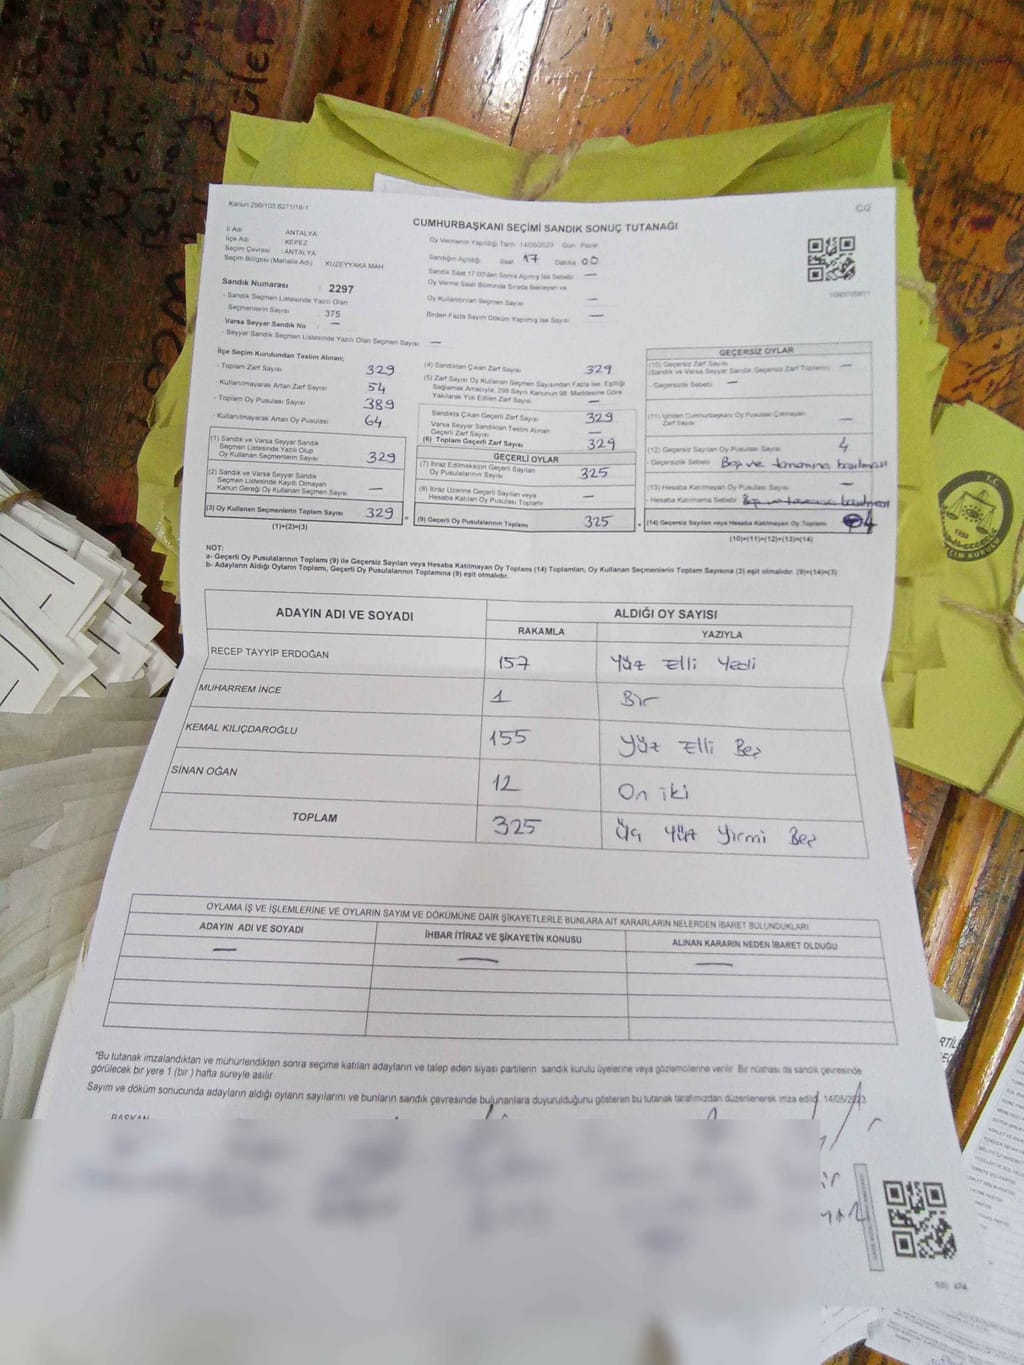 Kanun:298/105 6271/18-1
CUMHURBAŞKANI SEÇİMİ SANDIK SONUÇ TUTANAĞI
İl Adı ANTALYA
İlçe Adı KEPEZ
Seçim Çevresi : ANTALYA
Seçim Bölgesi (Mahalle Adı) KUZEYYAKA MAH
Sandık Numarası : 2297
- Sandık Seçmen Listesinde Yazılı Olan
Seçmenlerin Sayısı : 375
Varsa Seyyar Sandık No : —
- Seyyar Sandık Seçmen Listesinde Yazılı Olan Seçmen Sayısı : —
Oy Vermenin Yapıldığı Tarih 14/05/2023 Gün: Pazar
Sandığın Açıldığı Saat 17 Dakika 00
Sandık Saat 17.00'den Sonra Açılmış İse Sebebi —
Oy Verme Saati Bitiminde Sırada Bekleyen ve
Oy Kullandıran Seçmen Sayısı —
Birden Fazla Sayım Döküm Yapılmış İse Sayısı —
İlçe Seçim Kurulundan Teslim Alınan;
- Toplam Zarf Sayısı 329
- Kullanılmayarak Artan Zarf Sayısı 54
- Toplam Oy Pusulası Sayısı 389
- Kullanılmayarak Artan Oy Pusulası 64
(1) Sandık ve Varsa Seyyar Sandık
Seçmen Listesinde Yazılı Olup
Oy Kullanan Seçmenlerin Sayısı 329
(2) Sandık ve Varsa Seyyar Sandık
Seçmen Listesinde Kaydı Olmayan
Kanun Gereği Oy Kullanan Seçmen Sayısı —
(3) Oy Kullanan Seçmenlerin Toplam Sayısı 329
(1)+(2)=(3)
(4) Sandıktan Çıkan Zarf Sayısı 329
(5) Zarf Sayısı Oy Kullanan Seçmen Sayısından Fazla ise, Eşitliği
Sağlamak Amacıyla, 298 Sayılı Kanunun 98. Maddesine Göre
Yakılarak Yok Edilen Zarf Sayısı —
Sandıkta Çıkan Geçerli Zarf Sayısı 329
Varsa Seyyar Sandıktan Teslim Alınan
Geçerli Zarf Sayısı —
(6) Toplam Geçerli Zarf Sayısı 329
GEÇERLİ OYLAR
(7) İtiraz Edilmeksizin Geçerli Sayılan
Oy Pusulalarının Sayısı 325
(8) İtiraz Üzerine Geçerli Sayılan veya
Hesaba Katılan Oy Pusulası Toplamı —
(9) Geçerli Oy Pusulalarının Toplamı 325
GEÇERSİZ OYLAR
(10) Geçersiz Zarf Sayısı
(Sandık ve Varsa Seyyar Sandık Geçersiz Zarf Toplamı) —
- Geçersizlik Sebebi —
(11) İçinden Cumhurbaşkanı Oy Pusulası Çıkmayan
Zarf Sayısı —
(12) Geçersiz Sayılan Oy Pusulası Sayısı 4
- Geçersizlik Sebebi Boş ve tamamına basılması
(13) Hesaba Katılmayan Oy Pusulası Sayısı —
- Hesaba Katılmama Sebebi Boş ve tamamına basılması
(14) Geçersiz Sayılan veya Hesaba Katılmayan Oy Toplamı 4
(10)+(11)+(12)+(13)=(14)
NOT:
a- Geçerli Oy Pusulalarının Toplamı (9) ile Geçersiz Sayılan veya Hesaba Katılmayan Oy Toplamı (14) Toplamları, Oy Kullanan Seçmenlerin Toplam Sayısına (3) eşit olmalıdır. (9)+(14)=(3)
b- Adayların Aldığı Oyların Toplamı, Geçerli Oy Pusulalarının Toplamına (9) eşit olmalıdır.
ADAYIN ADI VE SOYADI ALDIĞI OY SAYISI
RAKAMLA YAZIYLA
RECEP TAYYİP ERDOĞAN 157 Yüz Elli Yedi
MUHARREM İNCE 1 Bir
KEMAL KILIÇDAROĞLU 155 Yüz Elli Beş
SİNAN OĞAN 12 On iki
TOPLAM 325 Üç Yüz Yirmi Beş
OYLAMA İŞ VE İŞLEMLERİNE VE OYLARIN SAYIM VE DÖKÜMÜNE DAİR ŞİKAYETLERLE BUNLARA AİT KARARLARIN NELERDEN İBARET BULUNDUKLARI
ADAYIN ADI VE SOYADI İHBAR İTİRAZ VE ŞİKAYETİN KONUSU ALINAN KARARIN NEDEN İBARET OLDUĞU
— — —
"Bu tutanak imzalandıktan ve mühürlendikten sonra seçime katılan adayların ve talep eden siyasi partilerin sandık kurulu üyelerine veya gözlemcilerine verilir. Bir nüshası da sandık çevresinde
görülecek bir yere 1 (bir ) hafta süreyle asılır.
Sayım ve döküm sonucunda adayların aldığı oyların sayılarını ve bunların sandık çevresinde bulunanlara duyurulduğunu gösteren bu tutanak tarafımızdan düzenlenerek imza edildi. 14/05/2023
BAŞKAN
T.C.